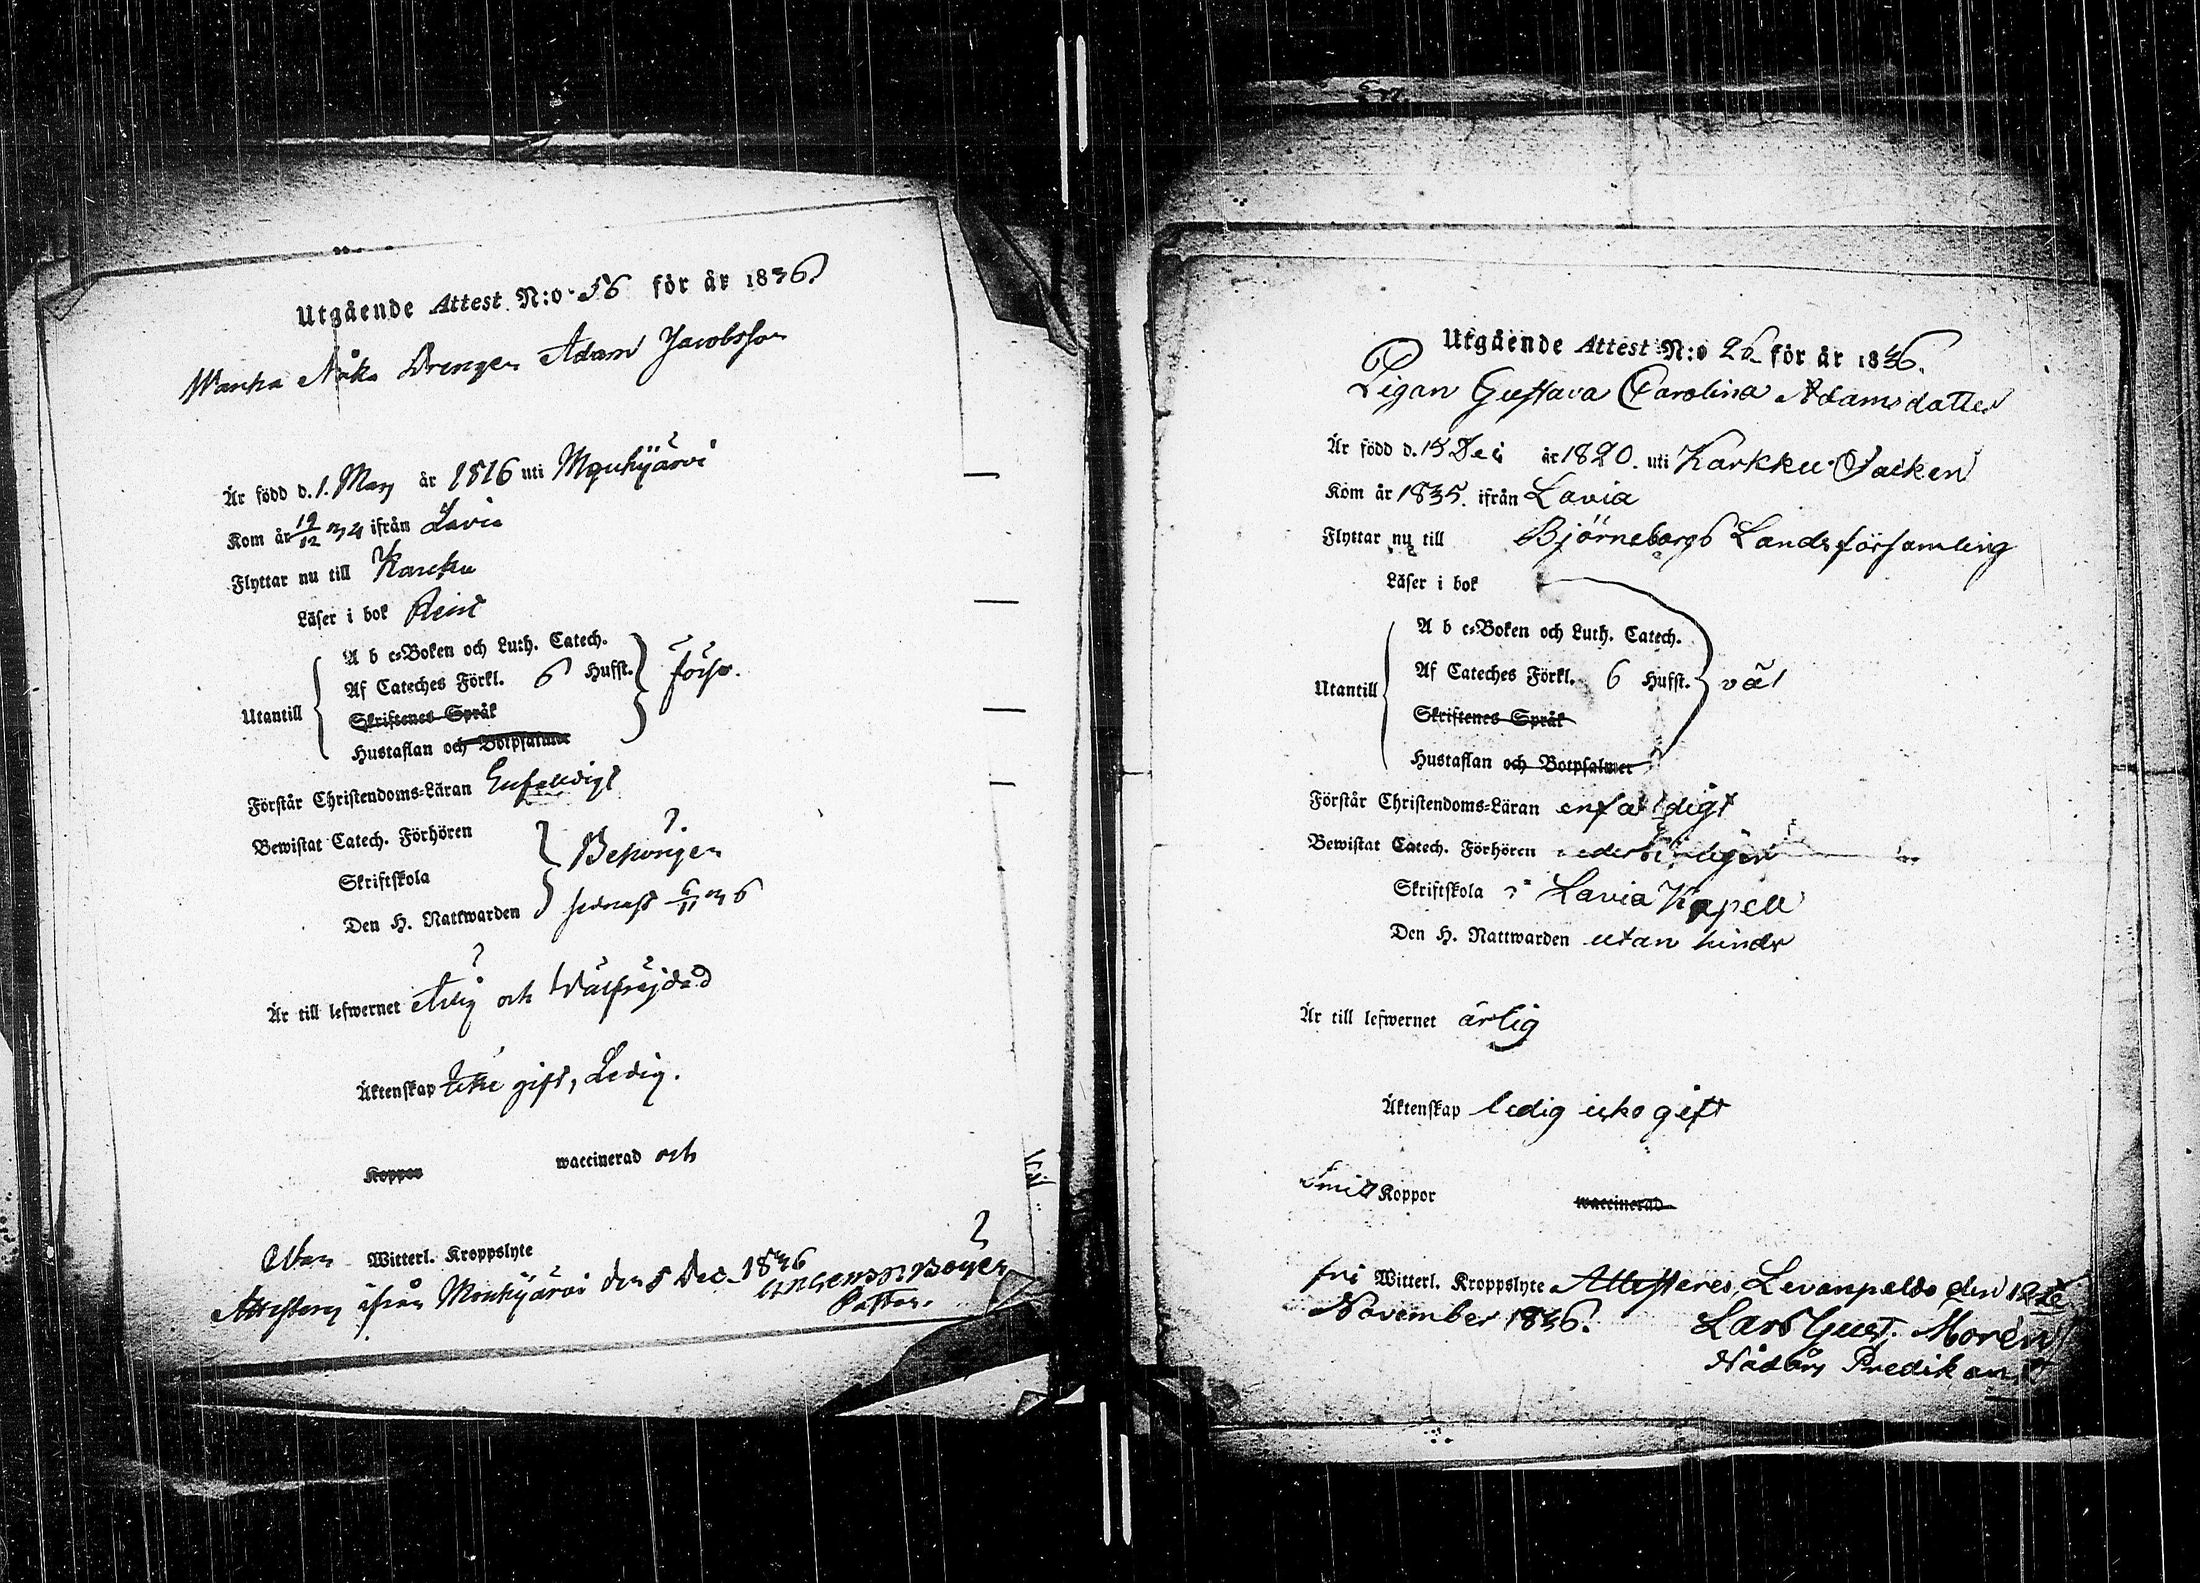 Utgående Attest N:o 56 för år 1836.
Drengen Adam Jacobsson
Är född d. 1. May år 1816 uti Mouhijärvi
Kom år 19/12 34 ifrån Lavia
Flyttar nu till Karcku
Läser i bok Rent
A b c-Boken och Luth. Catech.
Af Cateches Förkl. 6 Hufst. försv.
Utantill
Skriftenes Språk
Hustaflan och Botpsalmer
Förstår Christendoms-Läran Enfaldigt
Bewistat Catech. Förhören
Behörigen
Skriftskola
Den H. Nattwarden sednast 6/11 36
Är till lefwernet Ärlig och Välfrejdad
Äktenskap Icke gift, Ledig.
Koppor waccinerad och
Utan Witterl. Kroppslyte
Attesterar ifrån Mouhijärvi den 5 Dec. 1836
Pastor.
Utgående Attest N:o 26 för år 1836.
Pigan Gustava Carolina Adamsdatter
Är född d. 15 Dec år 1820. uti Karkku Socken
Kom år 1835. ifrån Lavia
Flyttar nu till Björneborgs Landsförsamling
Läser i bok
A b c-Boken och Luth. Catech.
Af Cateches Förkl. 6 Hufst. väl
Utantill
Skriftenes Språk
Hustaflan och Botpsalmer
Förstår Christendoms-Läran enfaldigt
Bewistat Catech. Förhören vederbörligen
Skriftskola i Lavia Kapell
Den H. Nattwarden utan hinder
Är till lefwernet ärlig
Äktenskap ledig icke gift
Koppor waccinerad
fri Witterl. Kroppslyte Attesteres, Levanpeldo den 12te
November 1836.
Lars Gust. Morén
Nådårs Predikant